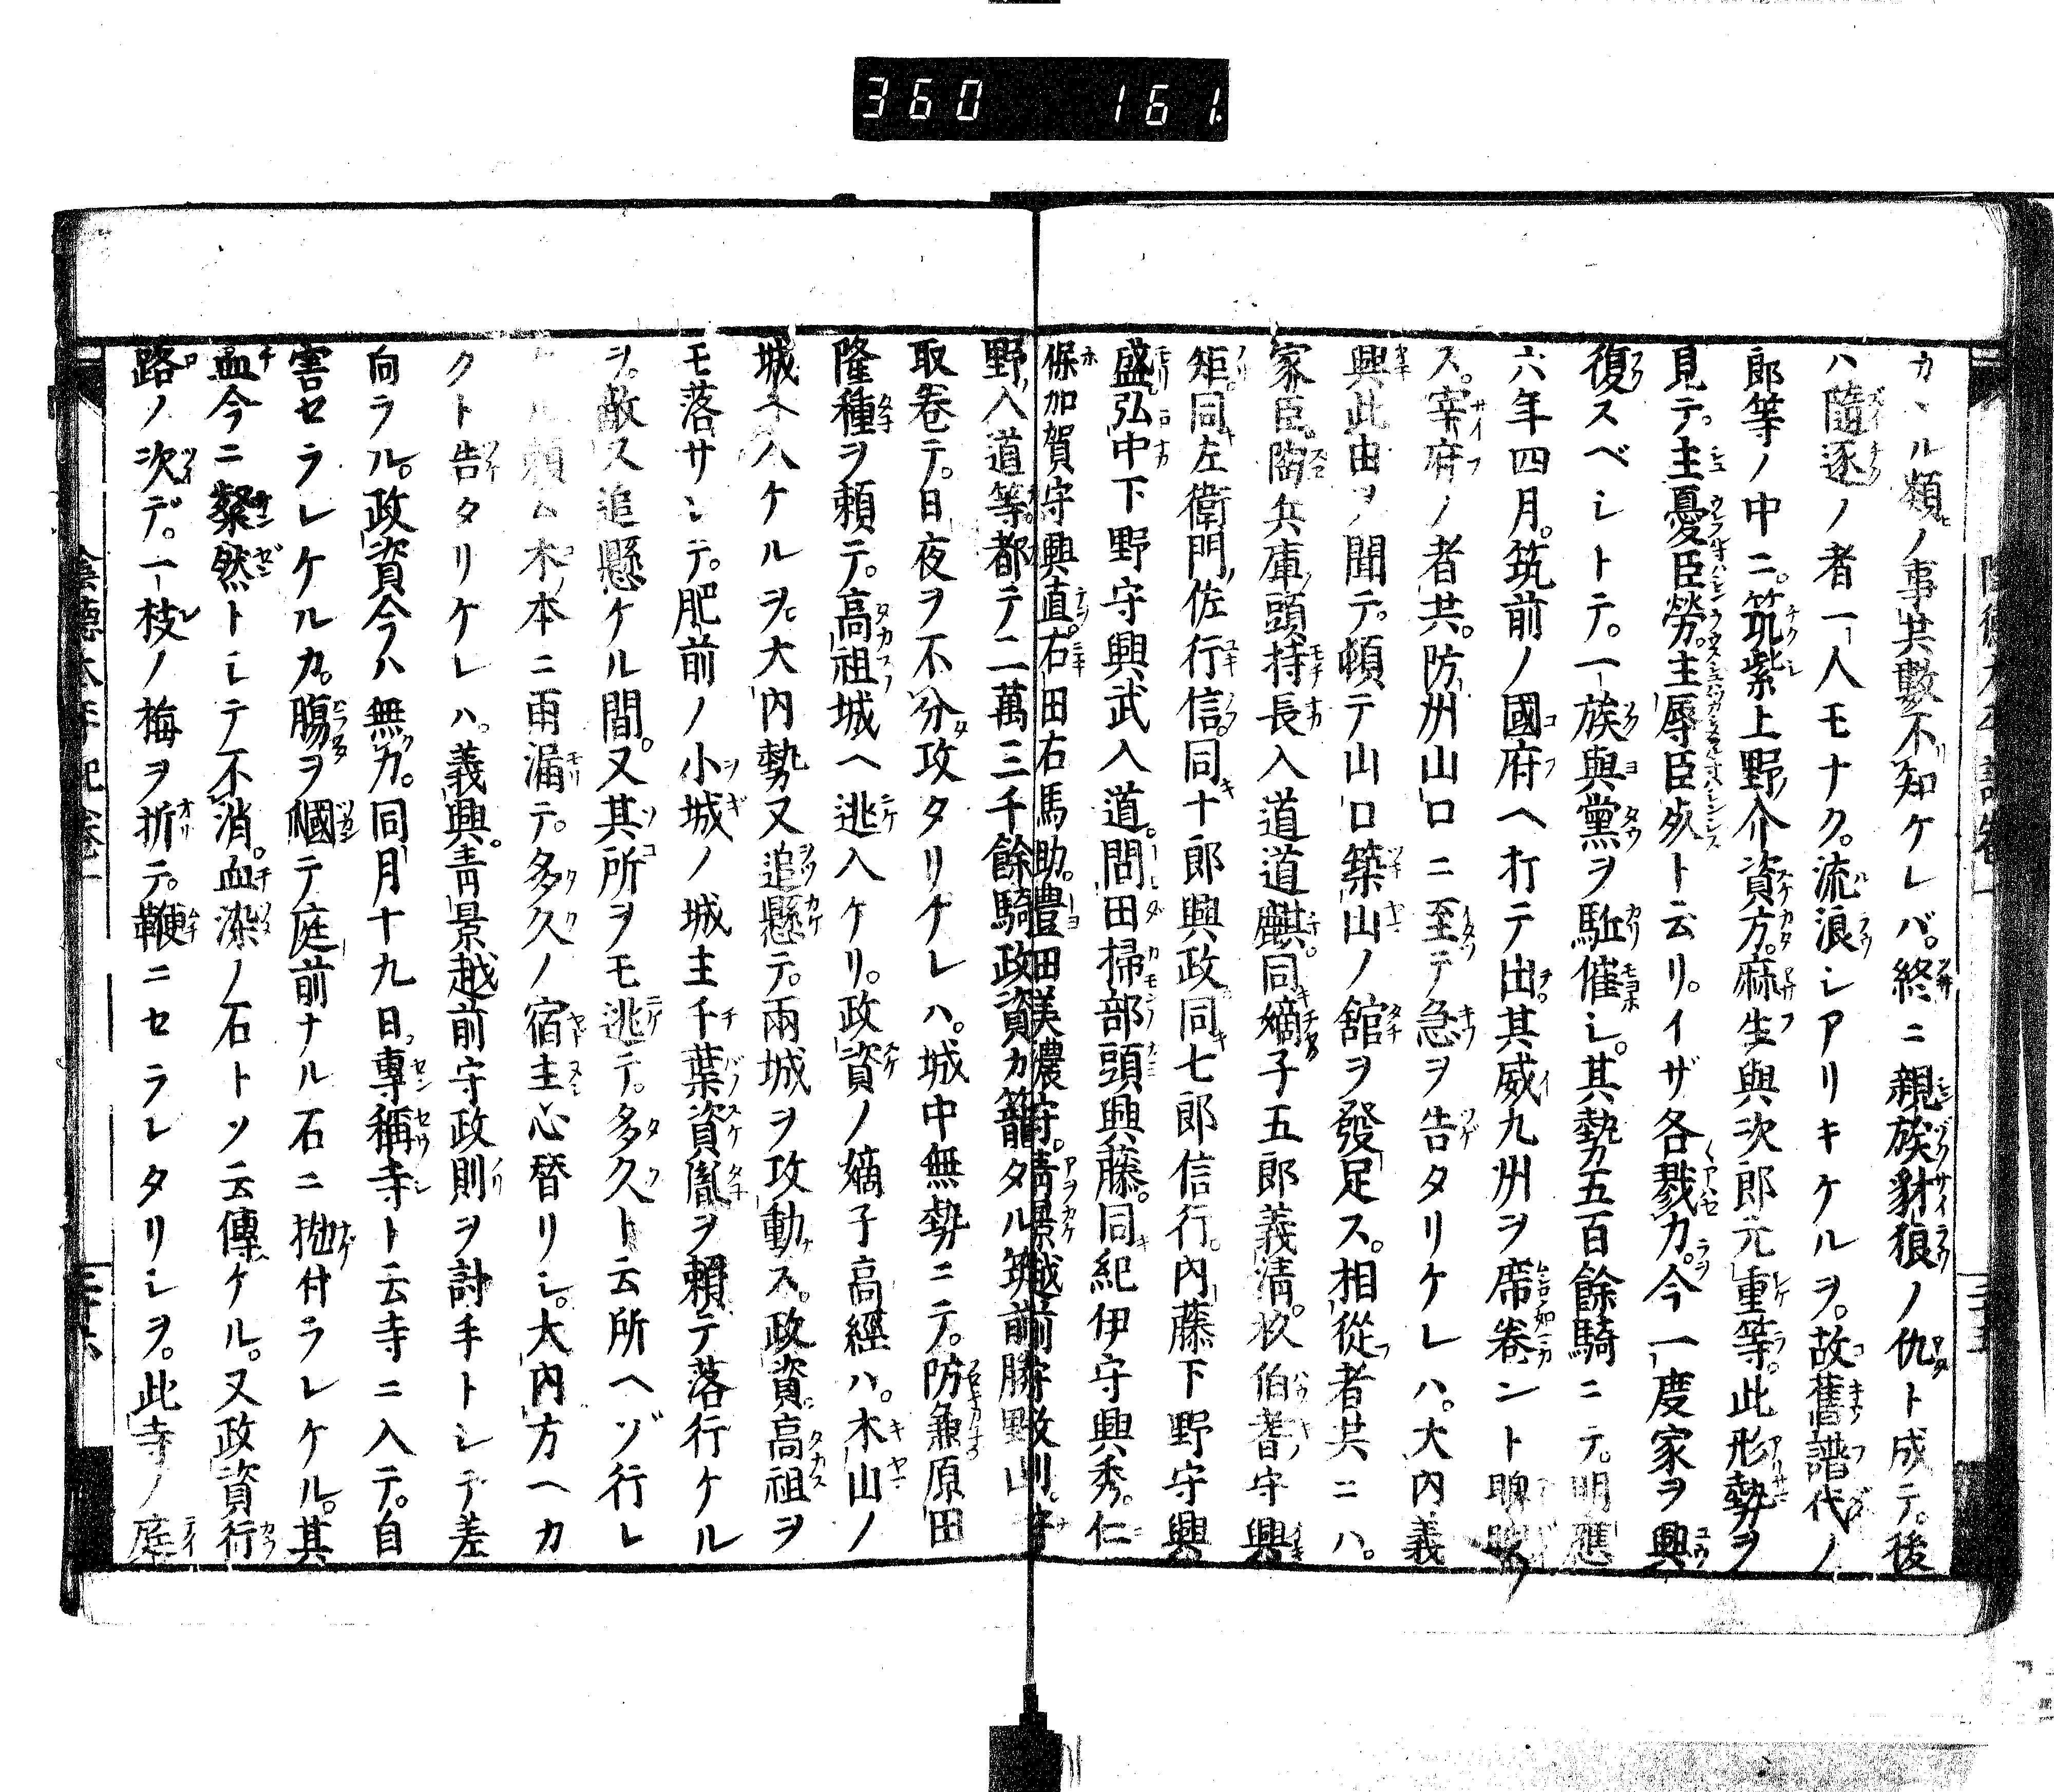 360 161.
カヽル類ノ事其數不知ケレバ。終ニ親族豺狼ノ仇ト成テ。後
ハ隨逐ノ者一人モナク。流浪シアリキケルヲ。故舊譜代ノ
郎等ノ中ニ。筑紫上野介資方。麻生與次郎元重等。此形勢ヲ
見テ。主憂臣勞。主辱臣死ト云リ。イザ各戮力。今一度家ヲ興
復スベシトテ。一族與黨ヲ駈催シ。其勢五百餘騎ニテ。明應
六年四月。筑前ノ國府ヘ打テ出其威九州ヲ席卷ント睥睨
ス。宰府ノ者共。防州山口ニ至テ急ヲ告タリケレハ。大内義
興此由ヲ聞テ。頓テ山口築山ノ舘ヲ發足ス。相從者共ニハ。
家臣。陶兵庫頭持長入道道麒。同嫡子五郎義清。杦伯耆守興
矩。同左衛門佐行信。同十郎興政同七郎信行。内藤下野守興
盛。弘中下野守興武入道。問田掃部頭興藤。同紀伊守興秀。仁
保加賀守興直。右田右馬助。豊田美濃守。青景越前守政則。
野入道等都テ二萬三千餘騎政資カ籠タル筑前勝野山
取卷テ。日夜ヲ不分攻タリケレハ。城中無勢ニテ。防兼原田
隆種ヲ頼テ。高祖城ヘ逃入ケリ。政資ノ嫡子高經ハ。木山ノ
城ヘ入ケルヲ大内勢又追懸テ。兩城ヲ攻動ス。政資高祖ヲ
モ落サシテ。肥前ノ小城ノ城主千葉資胤ヲ賴テ落行ケル
ヲ。敵又追懸ケル間。又其所ヲモ逃テ。多久ト云所ヘゾ行レ
ル頼ム木ノ本ニ雨漏テ。多久ノ宿主心替リシ。大内方ヘカ
クト告タリケレハ。義興。青景越前守政則ヲ討手トシテ差
向ラル。政資今ハ無力。同月十九日專稱寺ト云寺ニ入テ。自
害セラレケルカ。膓ヲ摑テ庭前ナル石ニ抛付ラレケル。其
血今ニ粲然トシテ不消。血染ノ石トソ云傳ケル。又政資行
路ノ次デ。一枝ノ梅ヲ折テ。鞭ニセラレタリシヲ。此寺ノ庭